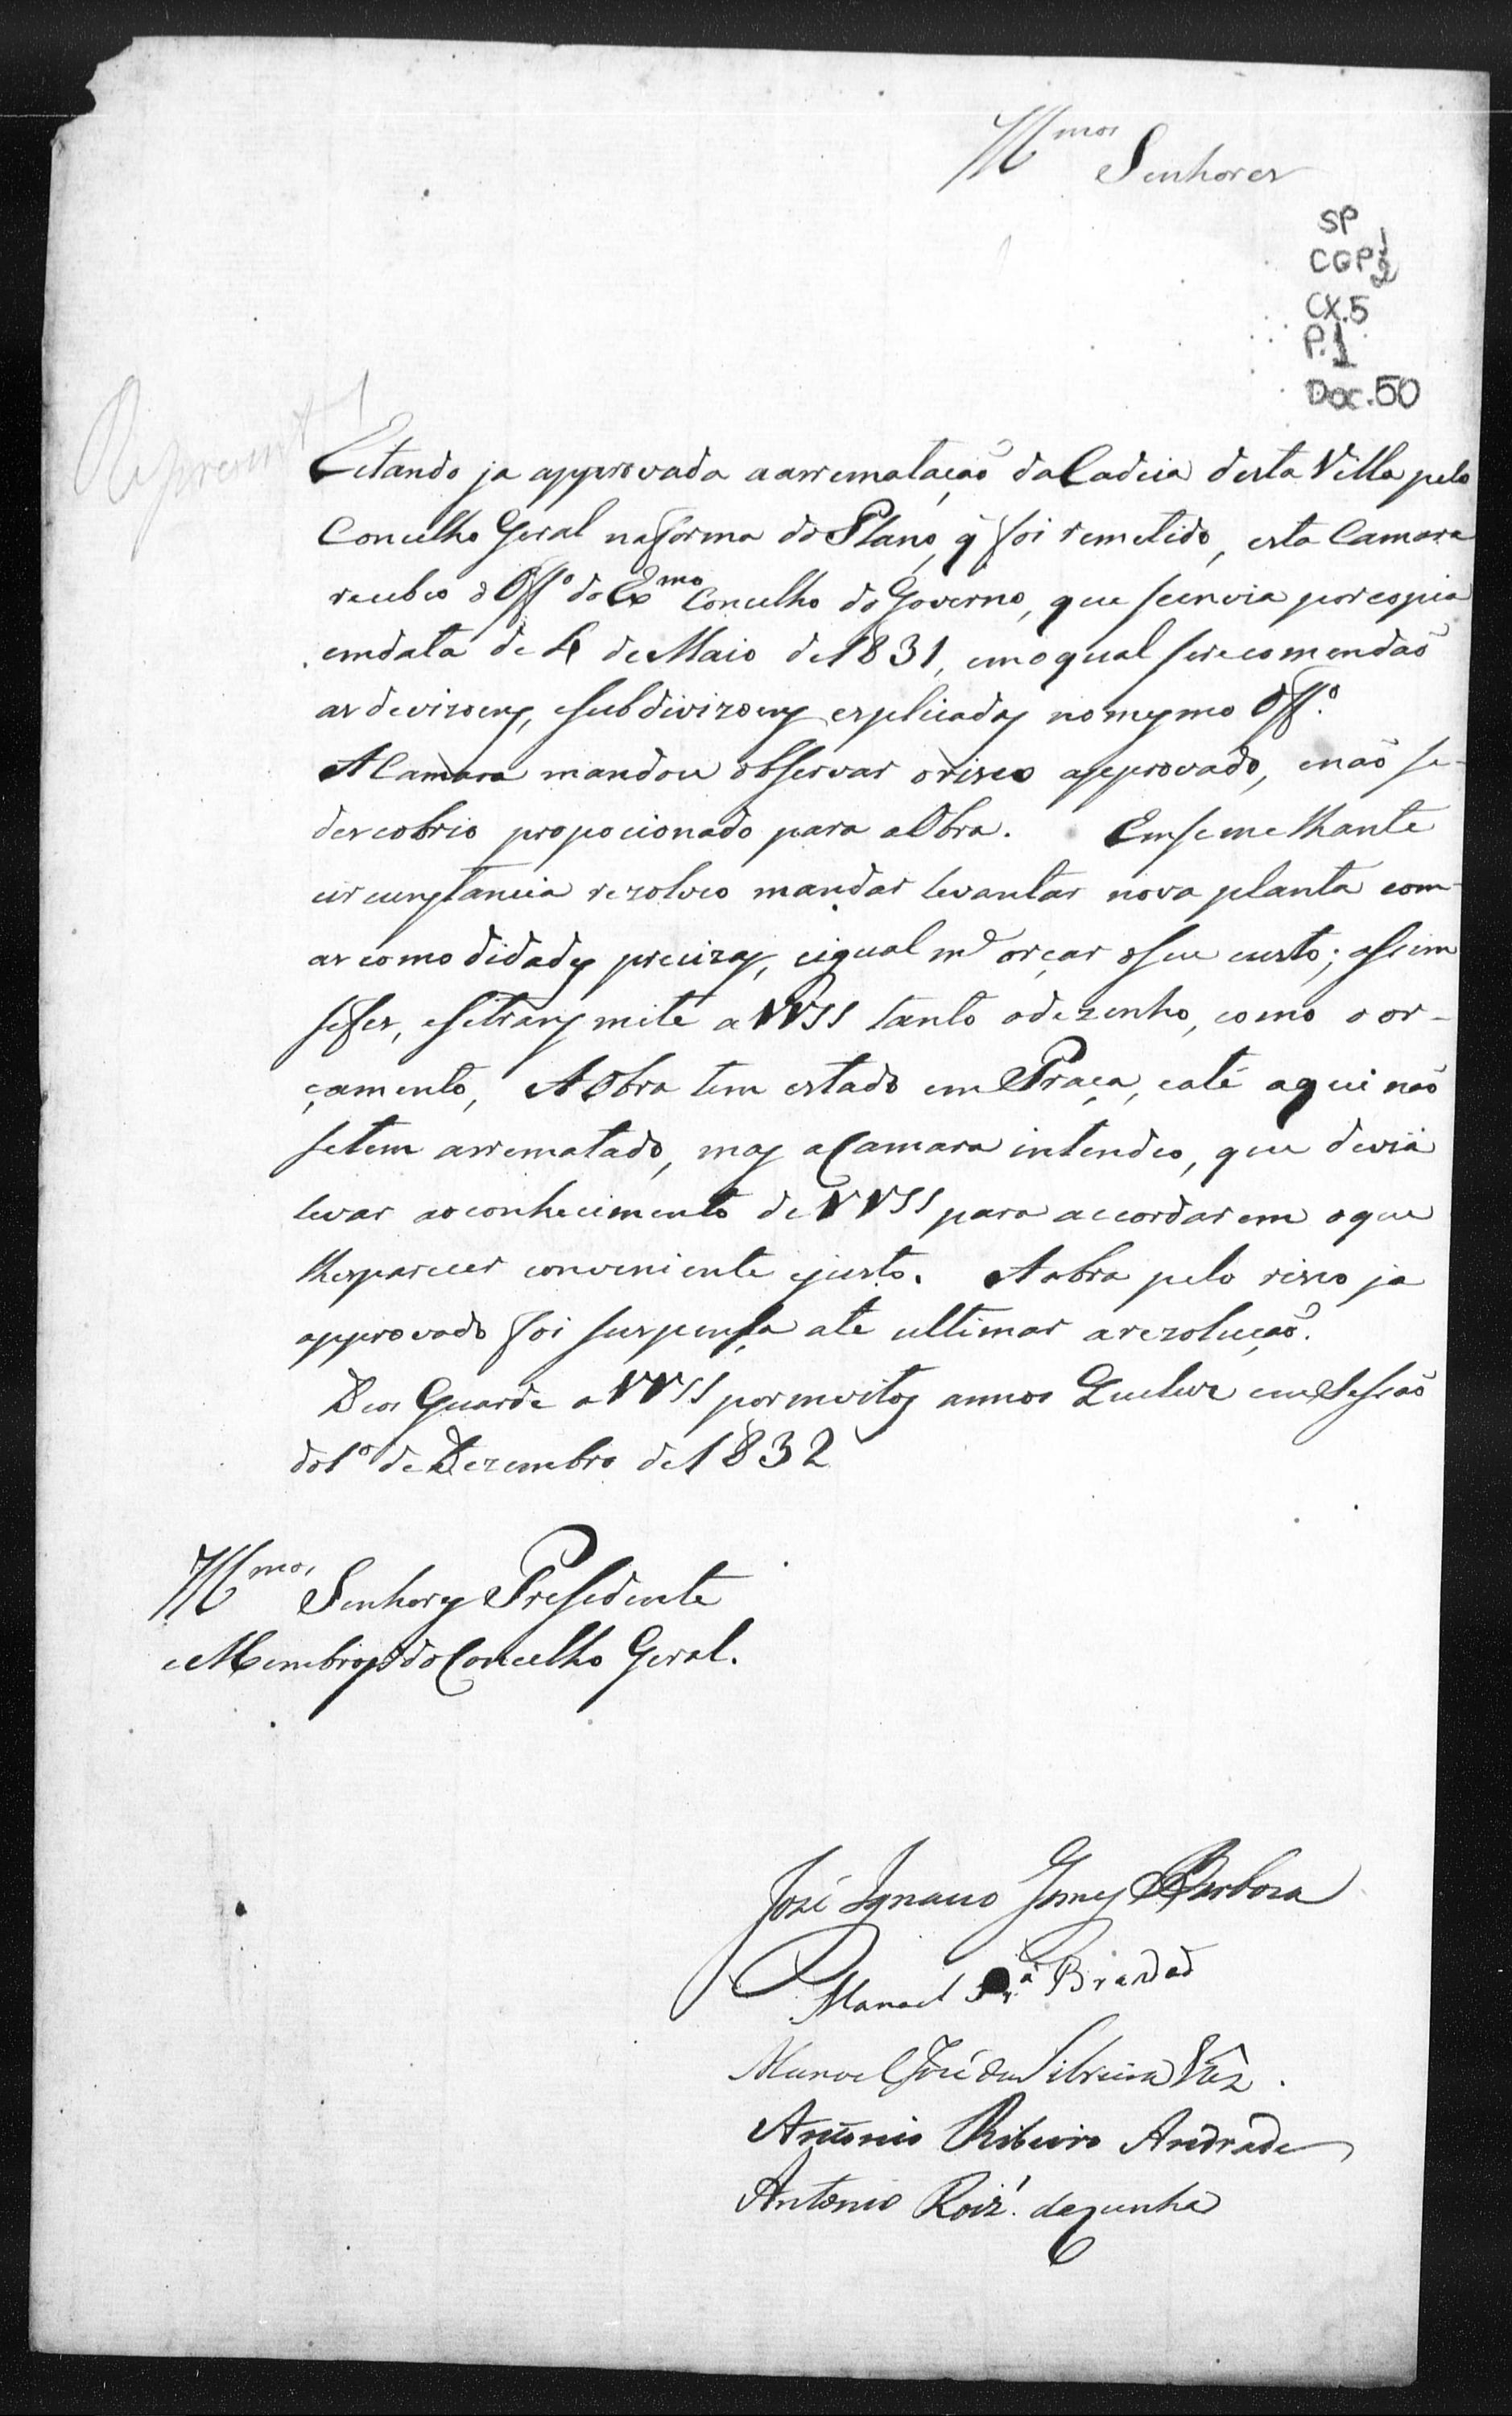 Illmos Senhores
SP
CGP 1/2
CX.5
P.1
Doc.50
Represent
Estando ja approvada a arremataçaõ da Cadeia desta Villa pelo
Concelho Geral na forma do Plano, q̃ foi remetido, esta Camara
recebeo o Offo do Exmo Concelho do Governo, que se invia por copia
em data de 4 de Maio de 1831, em o qual se recomendaõ
as devizoens, e subdivizoens explicadas no mesmo Offo.
A Camara mandou observar o risco approvado, e naõ se
descobrio propocionado para a Obra. Em semelhante
circunstancia rezolveo mandar levantar nova planta com
as comodidades precizas, e igual me orçar o seu custo; assim
se fes, e se transmite a VVSS tanto o dezenho, como o or-
çamento, A Obra tem estado em Praça, e até aqui naõ
se tem arrematado, mas a Camara intendeo, que devia
levar ao conhecimento de VVSS para accordarem o que
lhes parecer conveniente e justo. A obra pelo risco ja
approvado foi suspensa ate ultimar a rezoluçaõ.
Deos Guarde a VVSS por muitos annos Queluz em Sessaõ
do 1o de Dezembro de 1832
Illmos Senhores Presidente
e Membros do Concelho Geral.
José Ignacio Gomes Barboza
Manoel Pra Brandaõ
Manoel José da Silveira Váz.
Antonio Ribeiro Andrade
Antonio Roiz. da Cunha